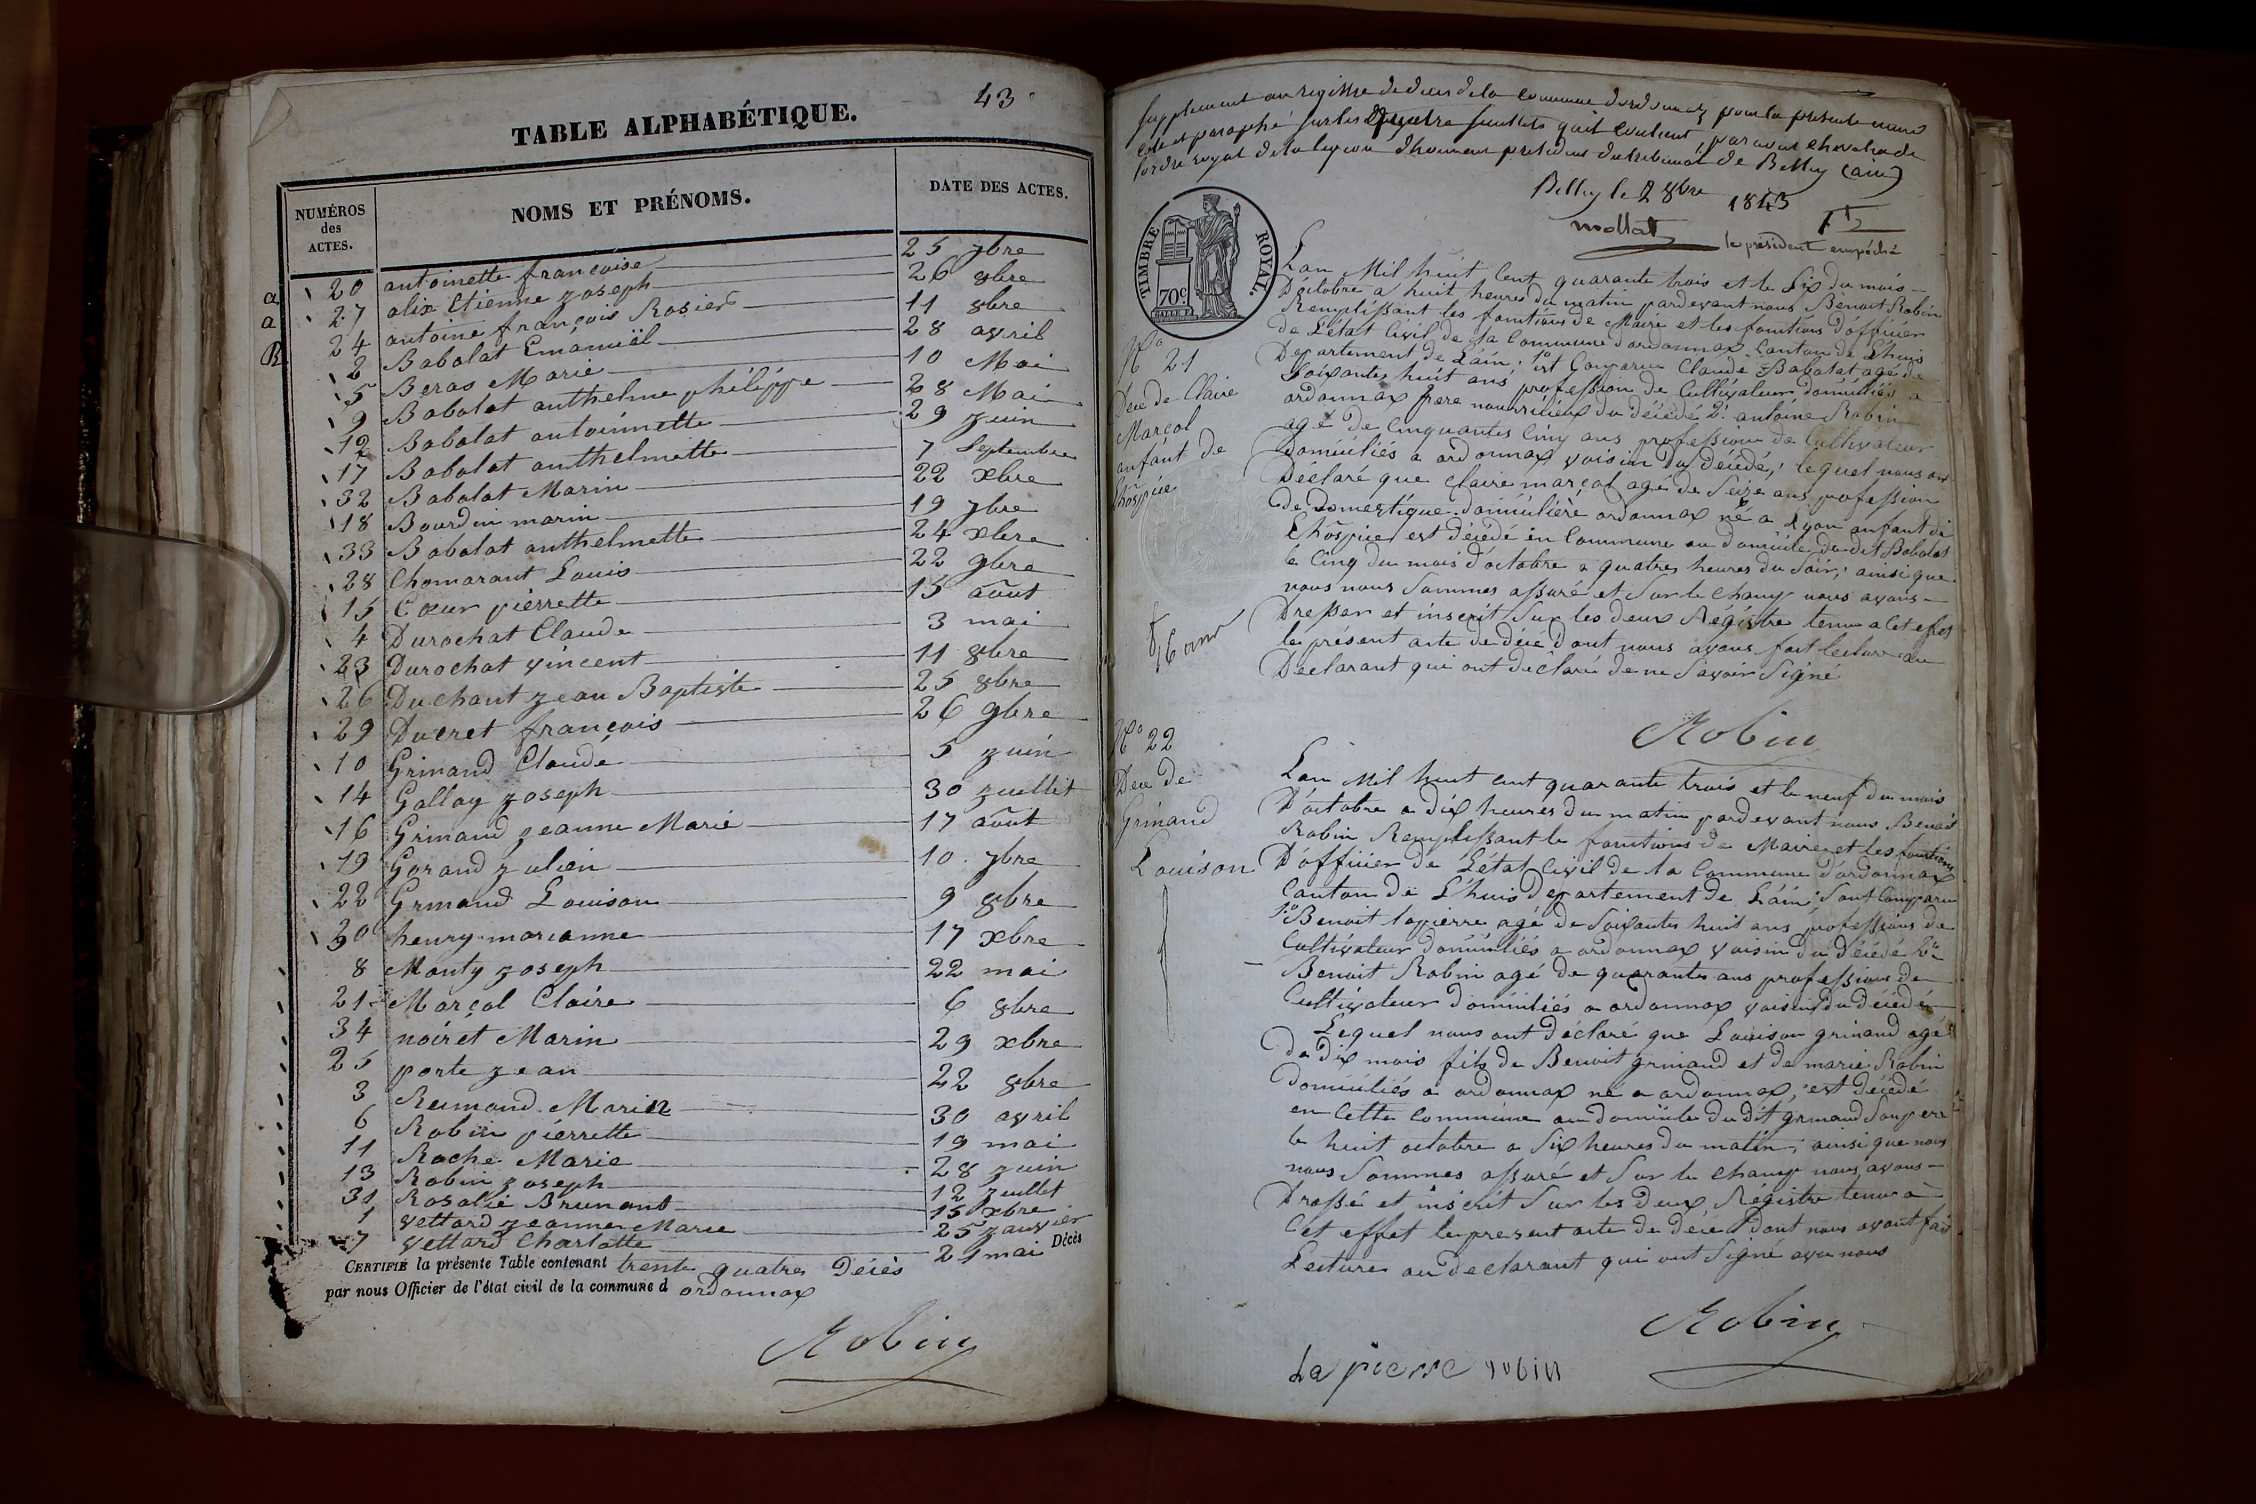 43
TABLE ALPHABÉTIQUE.
NUMÉROS
des
ACTES.
NOMS ET PRÉNOMS.
DATE DES ACTES.
a 20 antoinette françoise 25 7bre
a 27 alix Etienne zoseph 26 8bre
B 24 antoine françois Rosier 11 8bre
2 Babolat Emanuël 28 avril
5 Beras Marie 10 Mai
9 Babolat anthelme phélippe 28 Mai
12 Babolat antoinnette 29 zuin
17 Babolat anthelmette 7 Septembre
32 Babolat Marin 22 xbre
18 Bourdin marin 19 7bre
33 Babolat anthelmette 24 xbre
28 Chomarant Louis 22 9bre
15 Cœur pierrette 15 août
4 Durochat Claude 3 mai
23 Durochat vincent 11 8bre
26 Duchant zean Baptiste 25 8bre
29 Ducret françois 26 9bre
10 Grinand Claude 5 zuin
14 Gallay zoseph 30 zuellet
16 Grinand zeanne Marie 17 août
19 Gorand zulien 10 7bre
22 Grinand Louison 9 8bre
30 henry marianne 17 xbre
8 Monty zoseph 22 mai
21 Marçol Claire 6 8bre
34 noiret Marin 29 xbre
25 porte zean 22 8bre
3 Reimond Marie 30 avril
6 Robin pierrette 19 mai
11 Roche Marie 28 zuin
13 Robin zoseph 12 zuellet
31 Rosalie Brunant 15 xbre
1 vettard zeanne Marie 25 zanvier
7 vettard Charlotte 21 mai
CERTIFIÉ la présente Table contenant trente quatres Décès Décès
par nous Officier de l'état civil de la commune d ordonnax
Robin
Supplement au registre de deces de la commune dordonnaz pour la presente année
coté et paraphé sur les quatre feuillets quil contient, par nous chevalier de
lordre royal de la legion dhonneur president du tribunal de Belley (ain)
Belley le 2 8bre 1843
mollat
le président empêché
TIMBRE ROYAL.
70c.
Lan Mil huit Cent quarante trois et le Six du mois
D'octobre a huit heures du matin pardevant nous Benoit Robin
Remplissant les fonctions de Maire et les fonctions d'officier
de L'état Civil de la Commune d'ordonnax Canton de L'huis
N° 21
Departement de L'ain. 1° est Comparu Claude Babolat agé de
Soixantes huit ans profession de Cultivateur domiciliés a
Dece de Claire
ordonnax pere nourricieux du décédé 2° antoine Robin
Marçol
agé de Cinquantes Cinq ans profession de Cultivateur
anfant de
domiciliés a ordonnax voisin du décédé, lequel nous ont
l'hospice
Déclaré que Claire marçol agé de Seize ans profession
de domestique domiciliéré ordonnax né a Lyon anfant de
L'hospice est décédé en Commune au domicile du dit Babolat
le Cinq du mois d'octobre a quatres heures du Soir, ainsi que
nous nous Sommes assuré et Sur le Champ nous avons
16 ans
Dresser et inscrit Sur les deux Régistre tenu a Cet effet
le présent acte de déce dont nous avons fait lecture au
Declarant qui ont déclaré de ne Savoir Signé
Robin
N° 22
Lan Mil huit cent quarante trois et le neuf du mois
Dece de
D'octobre a dix heures du matin pardevant nous Benoit
Grinand
Robin Remplissant le fonctions de Maire et les fonctions
Louison
D'officier de L'état Civil de la Commune d'ordonnax
Canton de L'huis Departement de L'ain; Sont Comparu
1° Benoit lapierre agé de Soixantes huit ans professions de
Cultivateur domiciliés a ordonnax voisin du décédé 2°
Benoit Robin agé de quarantes ans professions de
Cultivateur domiciliés a ordonnax voisin du décedé
Lequel nous ont déclaré que Louison grinand agé
de dix mois fils de Benoit grinand et de marie Robin
domiciliés a ordonnax né a ordonnax, est décédé
en Cette Commune au domicile du dit grinand Son pere
le huit octobre a Six heures du matin, ainsi que nous
nous Sommes assuré et Sur le Champ nous avons
Dressé et inscrit Sur les deux Régistre tenu a
Cet effet le present acte de déce dont nous avont fait
Lecture au declarant qui ont Signé avec nous
Robin
La pierre robin